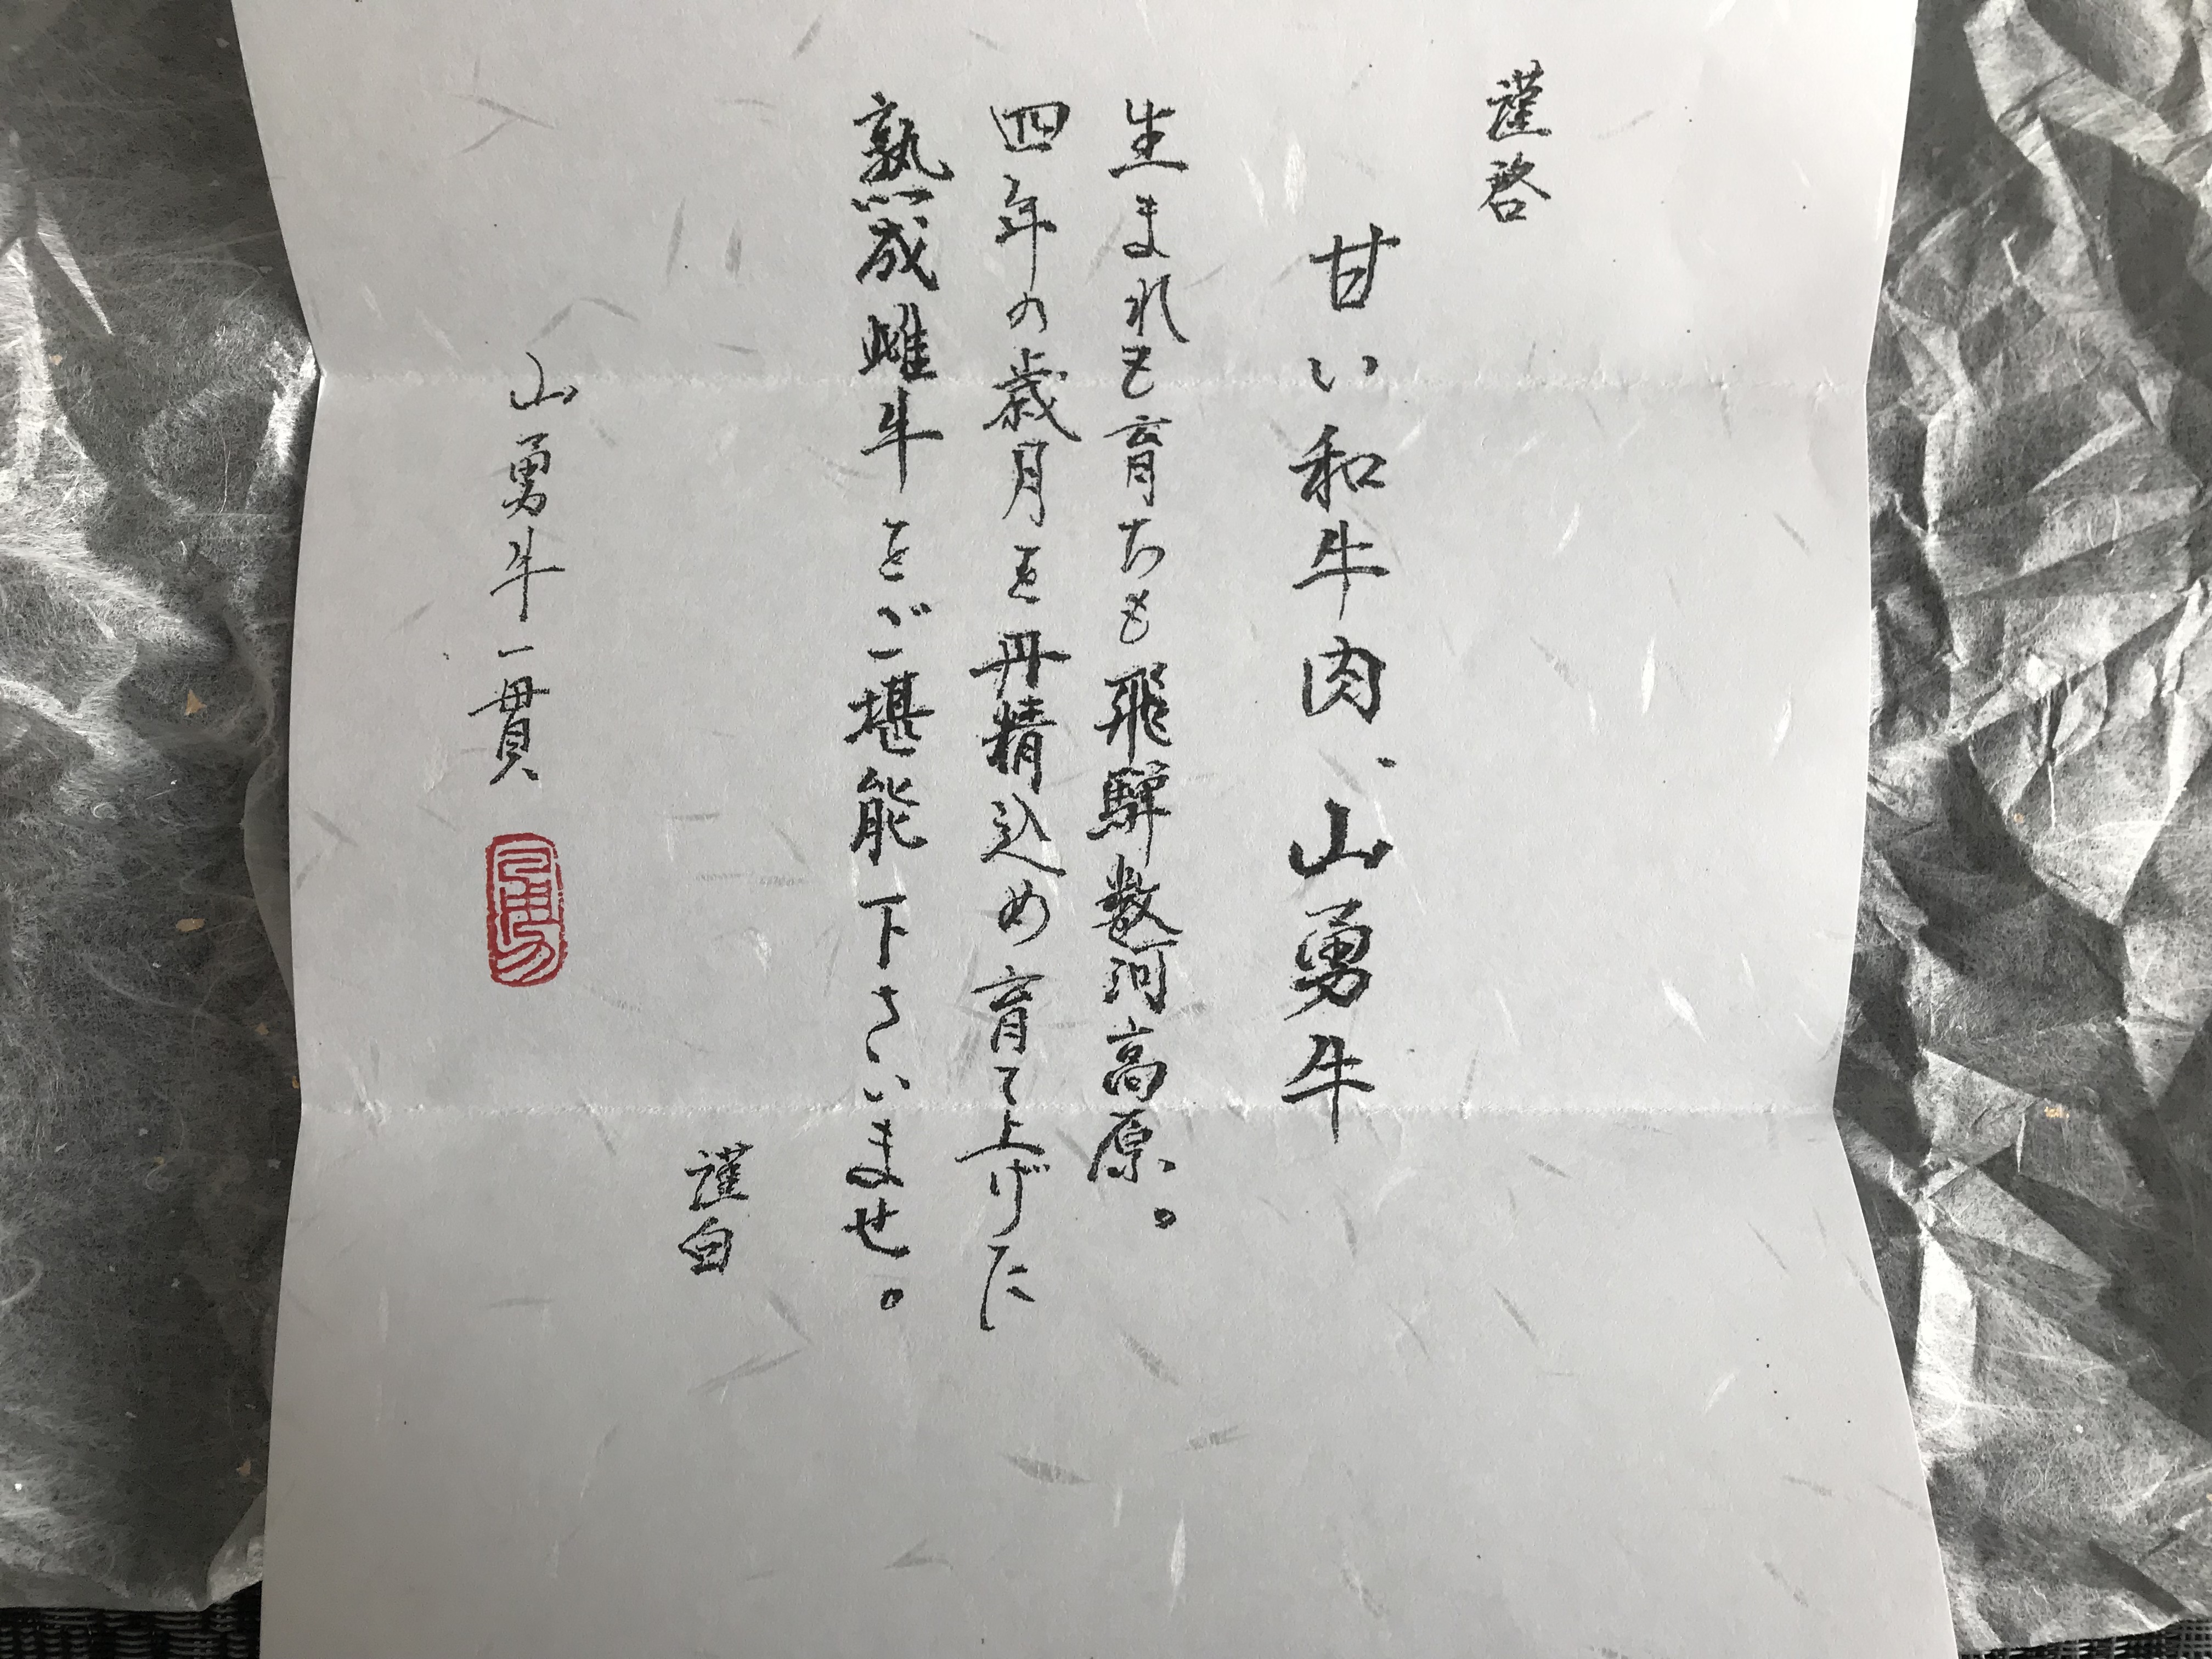 謹啓
甘い和牛肉、山勇牛
生まれも育ちも飛騨数河高原。
四年の歳月を丹精込め育て上げた
熟成雌牛をご堪能下さいませ。
謹白
山勇牛一貫